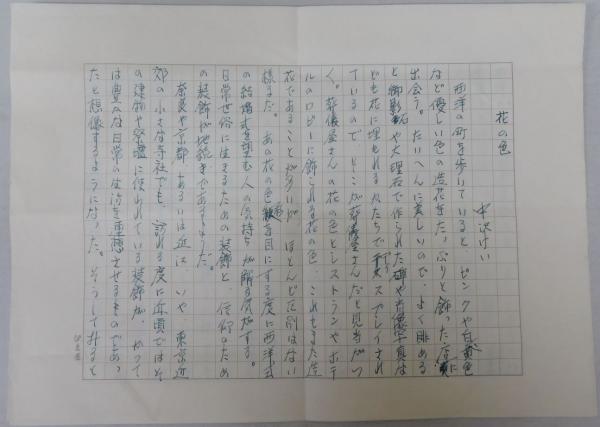 花の色
中沢けい
西洋の町を歩いていると、ピンクや白、黄色
など優しい色の造花をたっぷりと飾った
出会う。たいへんに美しいので、よく眺める
と御影や大理石で作られた碑や肖像写真は
ども花に埋もれる形でディスプレイされ
ているので、ここが葬儀屋さんだと見当がつ
く。葬儀屋さんの花の色とレストランやホテ
ルのロビーに飾られる花の色、これもまた造
花であることが多いが、ほとんど区別はない
様子だ。あの花の色を目にする度に西洋式
の結婚式を望む人の気持ちが解る気がする。
日常世俗に生きるための装飾と、信仰のため
の装飾が地続きであるようだ。
奈良や京都、あるいは近江、いや、東京近
郊の小さな寺社でも、訪れる度に近頃ではそ
の建物や祭壇に使われている装飾が、かつて
は豊かな日常の生活を連想させるものであっ
たと想像するようになった。そうして拝ると